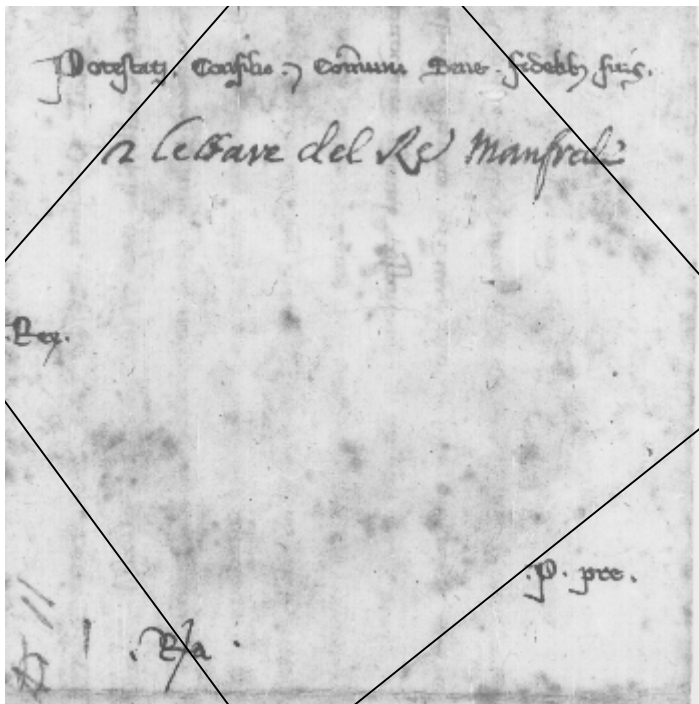 Potestati. Consilio. ⁊ Comuni Sene. fidelib; suis.
2 lettare del Re Manfredi
.Rex.
.P. pre.
. R/a .